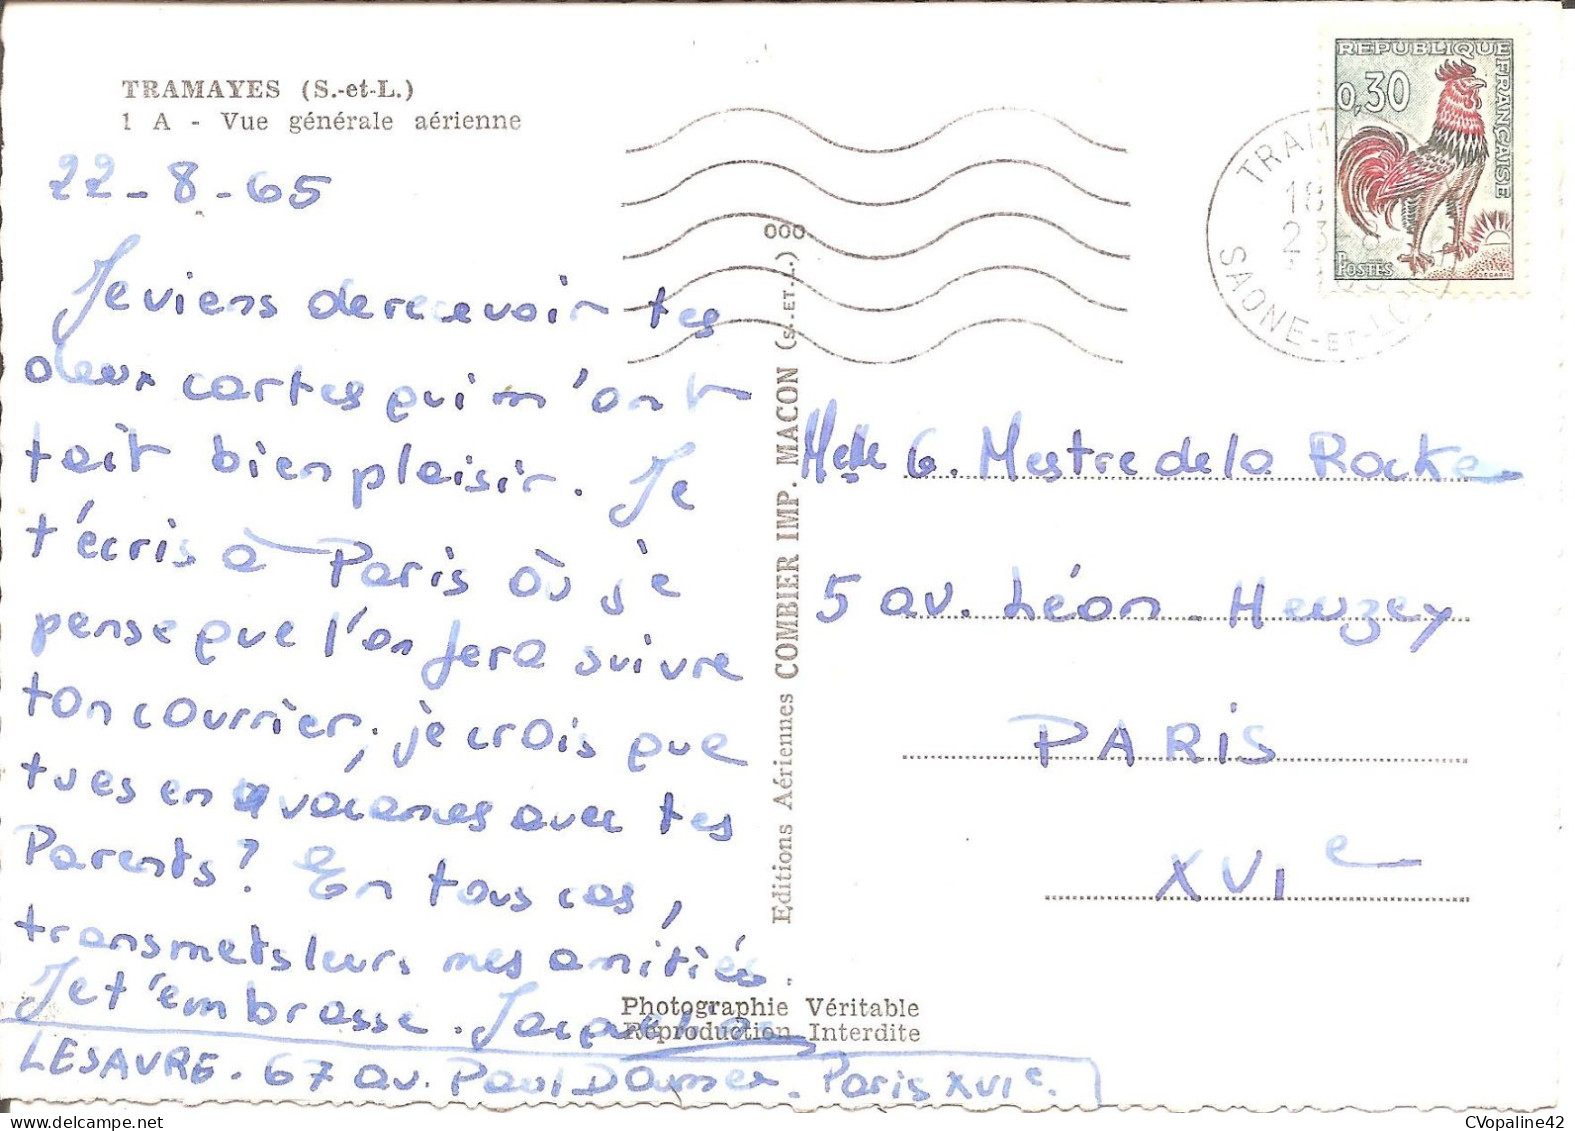 TRAMAYES (S.-et-L.)
1 A - Vue générale aérienne
22-8-65
Je viens de recevoir tes
deux cartes qui m'ont
fait bien plaisir. Je
t'écris à Paris où je
pense que l'on fera suivre
ton courrier; je crois que
tu es en vacances avec tes
Parents? En tous cas,
transmets leurs mes amitiés.
Je t'embrasse.
LESAVRE. 67 av. Paul Doumer. Paris XVIe
Editions Aériennes COMBIER IMP. MACON (S.-ET-L.)
000
Photographie Véritable
Reproduction Interdite
REPUBLIQUE FRANÇAISE
0,30
POSTES
DECARIS
18
23
SAONE-ET-LOIRE
Melle G. Mestre de la Roche
5 av. Léon-Heuzey
PARIS
XVIe
CVopaline42